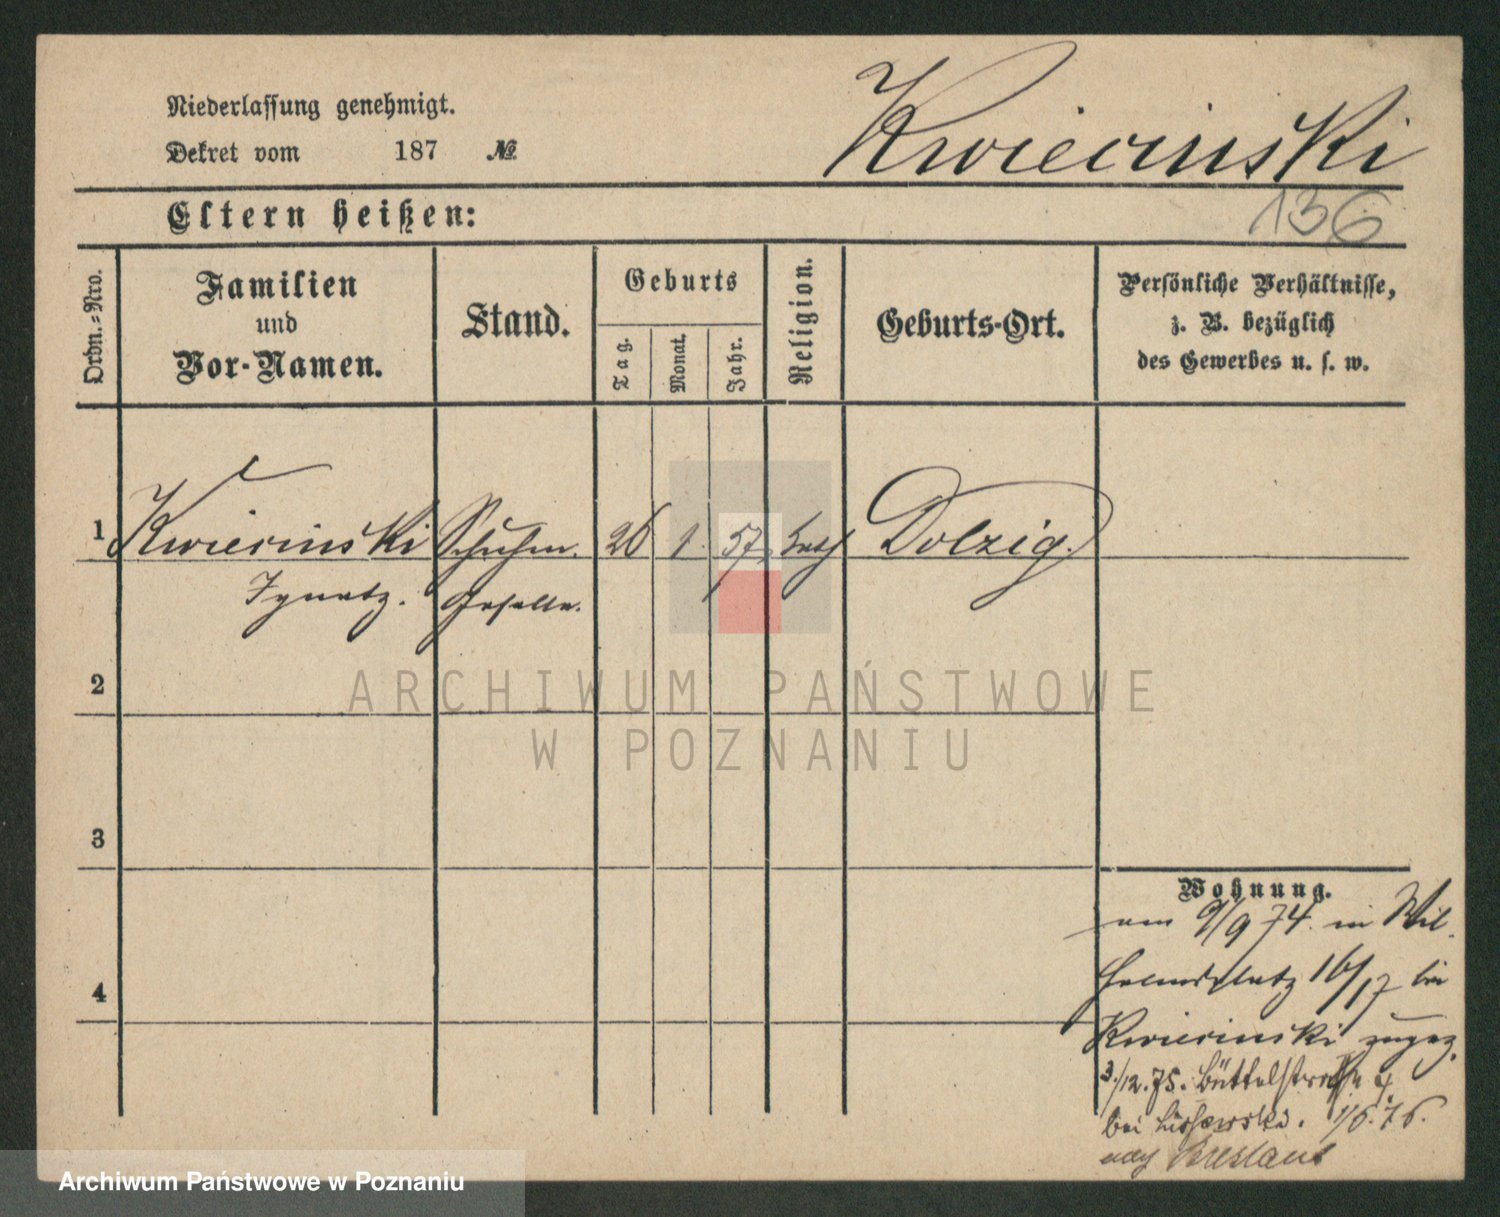 Niederlassung genehmigt.
Dekret vom 187 №
Kwiecinski
136
Eltern heißen:
Ordn.-Nro.
Familien
und
Vor-Namen.
Stand.
Geburts
Tag.
Monat.
Jahr.
Religion.
Geburts-Ort.
Persönliche Verhältnisse,
z. B. bezüglich
des Gewerbes u. s. w.
1 Kwiecinski Schuhm. 26 1. 57. kath Dolzig.
Ignatz. Geselle.
2
3
4
Wohnung.
am 9/9 74. in Wil-
helmsplatz 16/17 bei
Kwiecinski zugez.
3./12.75. Büttelstraße 4
bei 1/6.76.
nach Breslau
ARCHIWUM PAŃSTWOWE
W POZNANIU
Archiwum Państwowe w Poznaniu